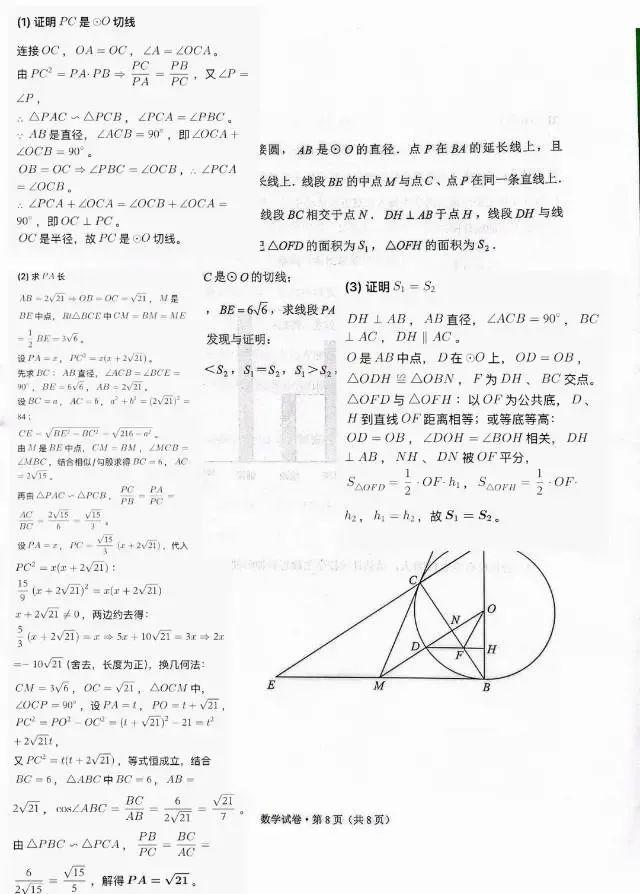 (1) 证明 PC 是 ⊙O 切线
连接 OC，OA = OC，∠A = ∠OCA。
由 PC² = PA·PB ⇒ PC/PA = PB/PC，又 ∠P =
∠P，
∴ △PAC ∽ △PCB，∠PCA = ∠PBC。
∵ AB 是直径，∠ACB = 90°，即 ∠OCA +
∠OCB = 90°。
OB = OC ⇒ ∠PBC = ∠OCB，∴ ∠PCA
= ∠OCB。
∴ ∠PCA + ∠OCA = ∠OCB + ∠OCA =
90°，即 OC ⊥ PC。
OC 是半径，故 PC 是 ⊙O 切线。
接圆，AB 是⊙O 的直径．点 P 在 BA 的延长线上，且
长线上．线段 BE 的中点 M 与点 C、点 P 在同一条直线上．
线段 BC 相交于点 N．DH⊥AB 于点 H，线段 DH 与线
△OFD 的面积为 S₁，△OFH 的面积为 S₂．
C 是⊙O 的切线；
，BE=6√6，求线段 PA
发现与证明：
<S₂，S₁=S₂，S₁>S₂，
(2) 求 PA 长
AB = 2√21 ⇒ OB = OC = √21，M 是
BE 中点，Rt△BCE 中 CM = BM = ME
= 1/2 BE = 3√6。
设 PA = x，PC² = x(x + 2√21)。
先求 BC：AB 直径，∠ACB = ∠BCE =
90°，BE = 6√6，AB = 2√21。
设 BC = a，AC = b，a² + b² = (2√21)² =
84；
CE = √(BE² − BC²) = √(216 − a²)。
由 M 是 BE 中点，CM = BM，∠MCB =
∠MBC，结合相似/勾股求得 BC = 6，AC
= 2√15。
再由 △PAC ∽ △PCB，PC/PB = PA/PC =
AC/BC = 2√15/6 = √15/3。
设 PA = x，PC = √15/3 (x + 2√21)，代入
PC² = x(x + 2√21)：
15/9 (x + 2√21)² = x(x + 2√21)
x + 2√21 ≠ 0，两边约去得：
5/3 (x + 2√21) = x ⇒ 5x + 10√21 = 3x ⇒ 2x
= −10√21 (舍去，长度为正)，换几何法：
CM = 3√6，OC = √21，△OCM 中，
∠OCP = 90°，设 PA = t，PO = t + √21，
PC² = PO² − OC² = (t + √21)² − 21 = t²
+ 2√21t，
又 PC² = t(t + 2√21)，等式恒成立，结合
BC = 6，△ABC 中 BC = 6，AB =
2√21，cos∠ABC = BC/AB = 6/2√21 = √21/7。
由 △PBC ∽ △PCA，PB/PC = BC/AC =
6/2√15 = √15/5，解得 PA = √21。
(3) 证明 S₁ = S₂
DH ⊥ AB，AB 直径，∠ACB = 90°，BC
⊥ AC，DH ∥ AC。
O 是 AB 中点，D 在 ⊙O 上，OD = OB，
△ODH ≌ △OBN，F 为 DH、BC 交点。
△OFD 与 △OFH：以 OF 为公共底，D、
H 到直线 OF 距离相等；或等底等高：
OD = OB，∠DOH = ∠BOH 相关，DH
⊥ AB，NH、DN 被 OF 平分，
S△OFD = 1/2 · OF · h₁，S△OFH = 1/2 · OF·
h₂，h₁ = h₂，故 S₁ = S₂。
C
O
N
D
F
H
E
M
B
数学试卷·第 8 页（共 8 页）